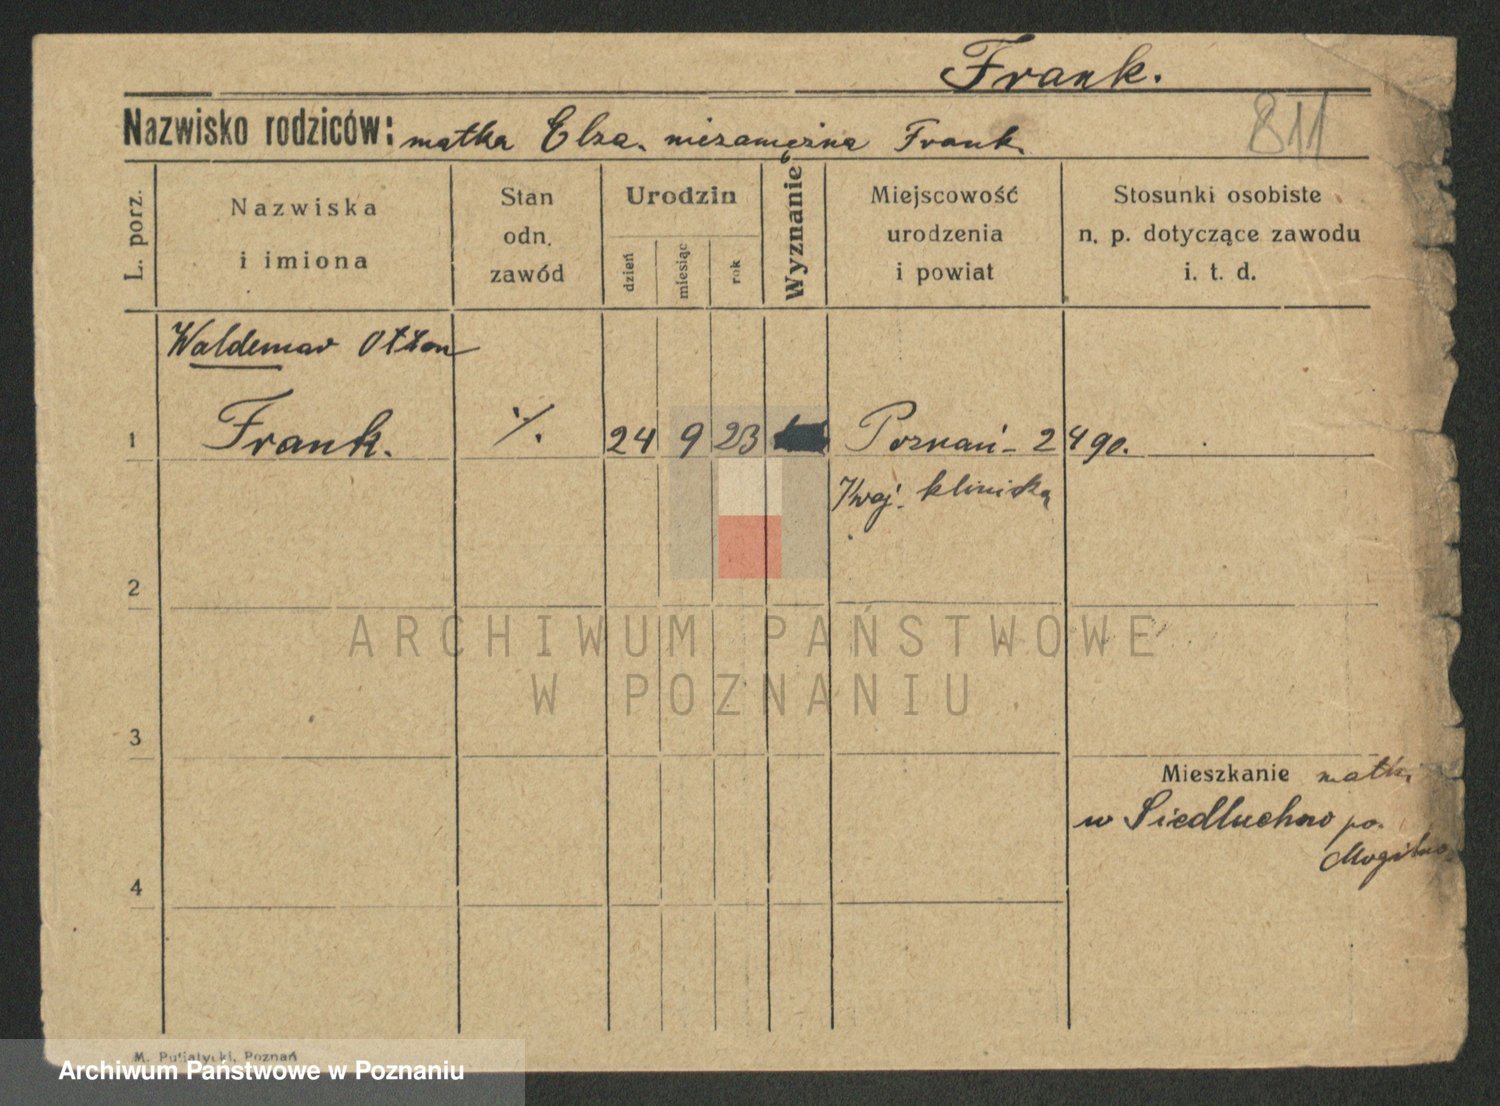 Frank.
811
Nazwisko rodziców: matka Elza. niezamężna Frank.
L. porz.
Nazwiska
i imiona
Stan
odn.
zawód
Urodzin
dzień
miesiąc
rok
Wyznanie
Miejscowość
urodzenia
i powiat
Stosunki osobiste
n. p. dotyczące zawodu
i. t. d.
Waldemar Otton
1 Frank. ·/. 24 9 23 Poznań - 2490.
Kraj. klinika
2
ARCHIWUM PAŃSTWOWE
W POZNANIU
3
Mieszkanie matki
w Siedluchno po.
Mogilno
4
M. Putiatycki, Poznań
Archiwum Państwowe w Poznaniu